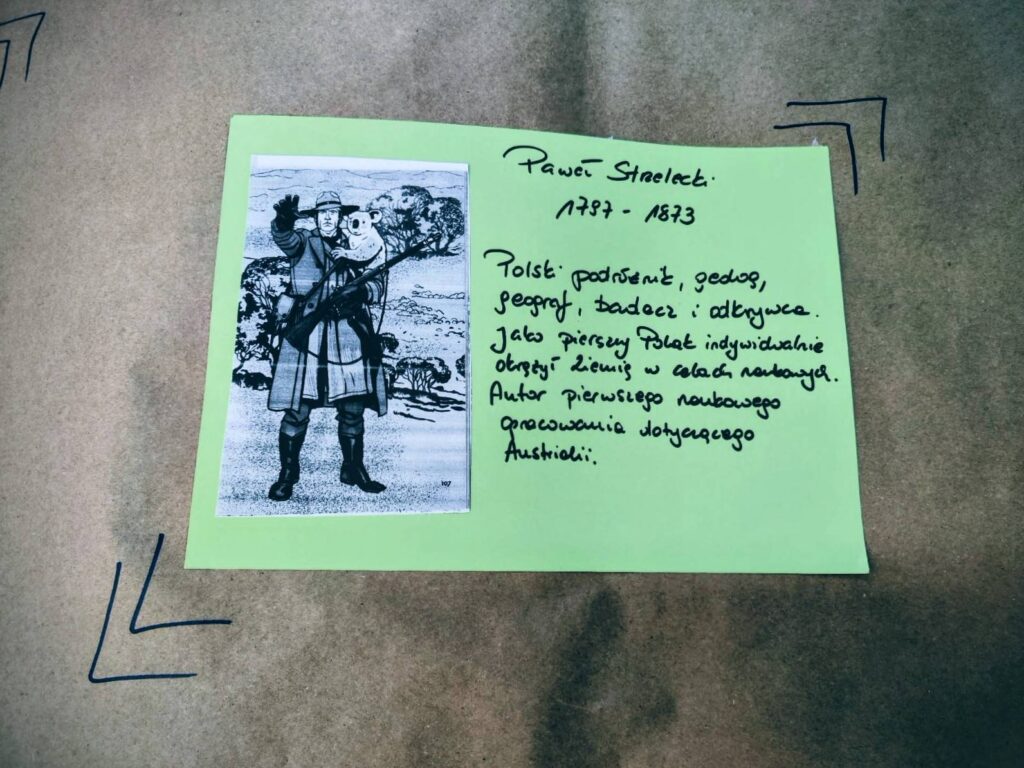 Paweł Strelecki
1797 - 1873
Polski podróżnik, geolog,
geograf, badacz i odkrywca.
Jako pierwszy Polak indywidualnie
okrążył Ziemię w celach naukowych.
Autor pierwszego naukowego
opracowania dotyczącego
Australii.
107